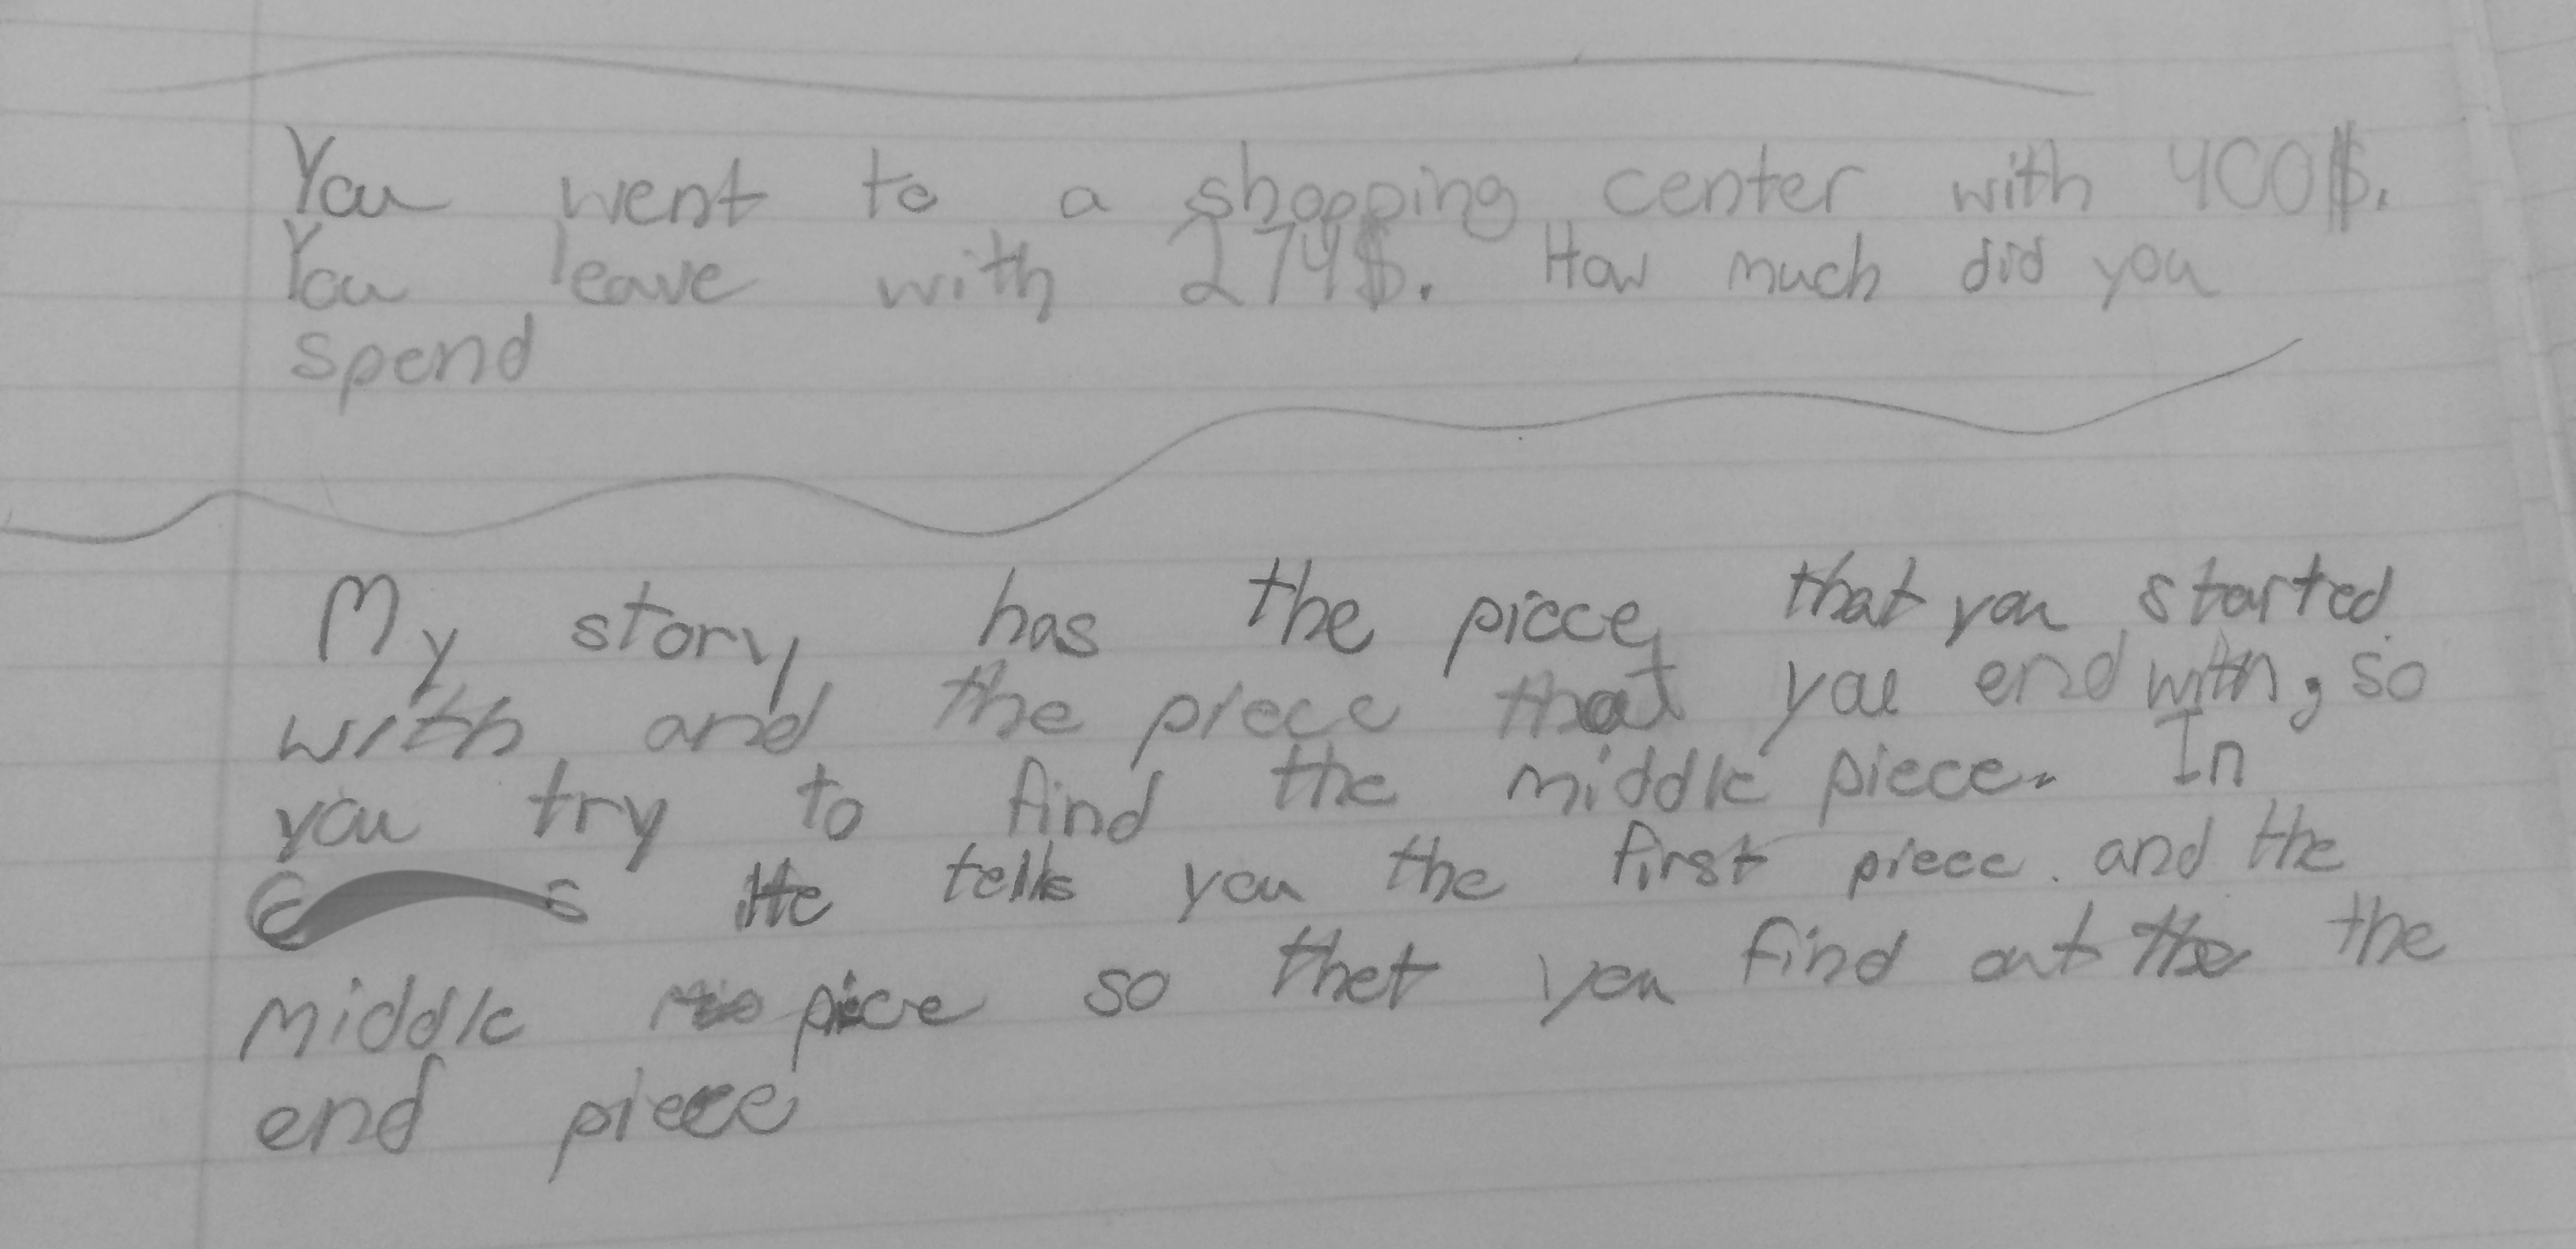 You went to a shopping center with 400$.
You leave with 274$. How much did you
spend
My story has the piece that you started
with and the piece that you end with, so
you try to find the middle piece. In
He tells you the first piece and the
middle piece so that you find out the the
end piece